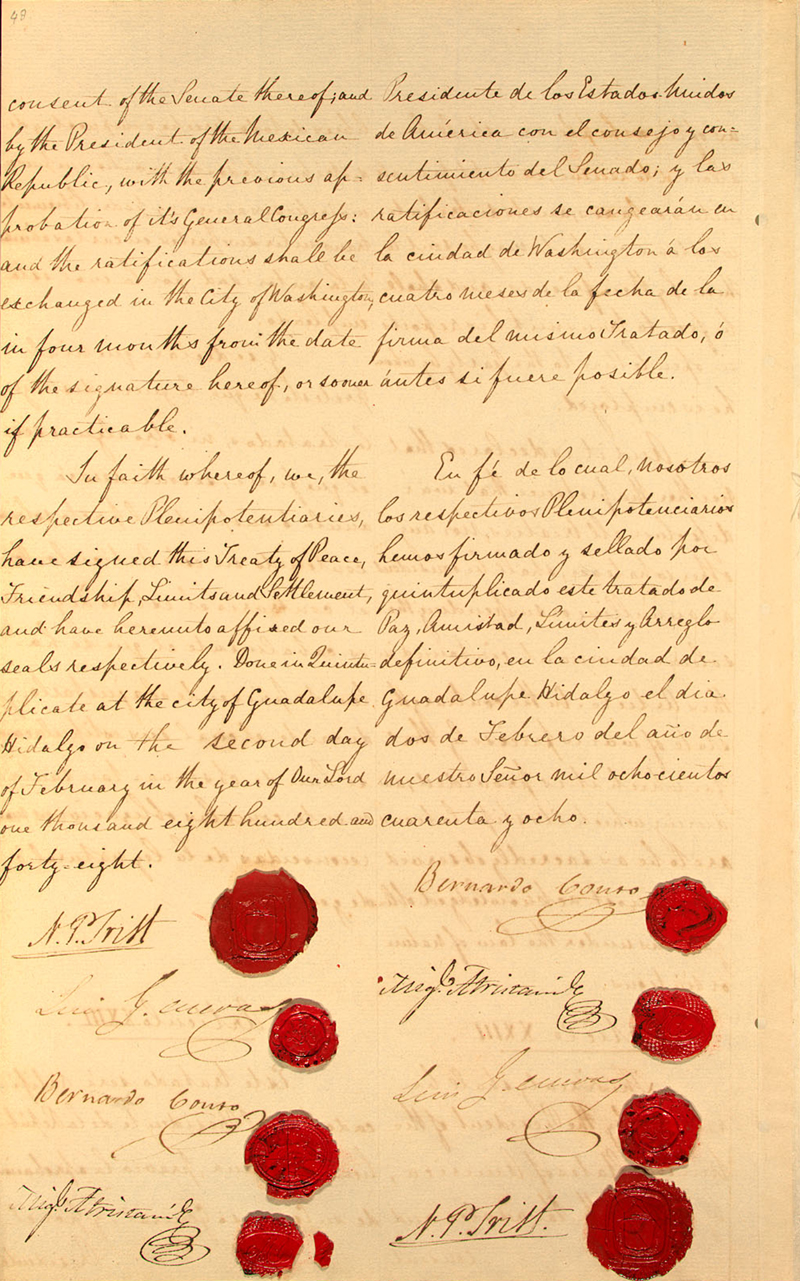 43
consent of the Senate thereof; and
by the President of the Mexican
Republic, with the previous ap=
probation of it's General Congress:
and the ratifications shall be
exchanged in the City of Washington,
in four months from the date
of the signature hereof, or sooner
if practicable.
In faith whereof, we, the
respective Plenipotentiaries,
have signed this Treaty of Peace,
Friendship, Limits and Settlement,
and have hereunto affixed our
seals respectively. Done in Quintu=
plicate at the city of Guadalupe
Hidalgo on the second day
of February in the year of Our Lord
one thousand eight hundred and
forty-eight.
N. P. Trist
Luis G. Cuevas
Bernardo Couto
Migl. Atristain
Presidente de los Estados-Unidos
de América con el consejo y con=
sentimiento del Senado; y las
ratificaciones se cangearán en
la ciudad de Washington á los
cuatro meses de la fecha de la
firma del mismo Tratado, ó
ántes si fuere posible.
En fé de lo cual, nosotros
los respectivos Plenipotenciarios
hemos firmado y sellado por
quintuplicado este tratado de
Paz, Amistad, Límites y Arreglo
definitivo, en la ciudad de
Guadalupe Hidalgo el dia
dos de Febrero del año de
nuestro Señor mil ochocientos
cuarenta y ocho.
Bernardo Couto
Migl. Atristain
Luis G. Cuevas
N. P. Trist.